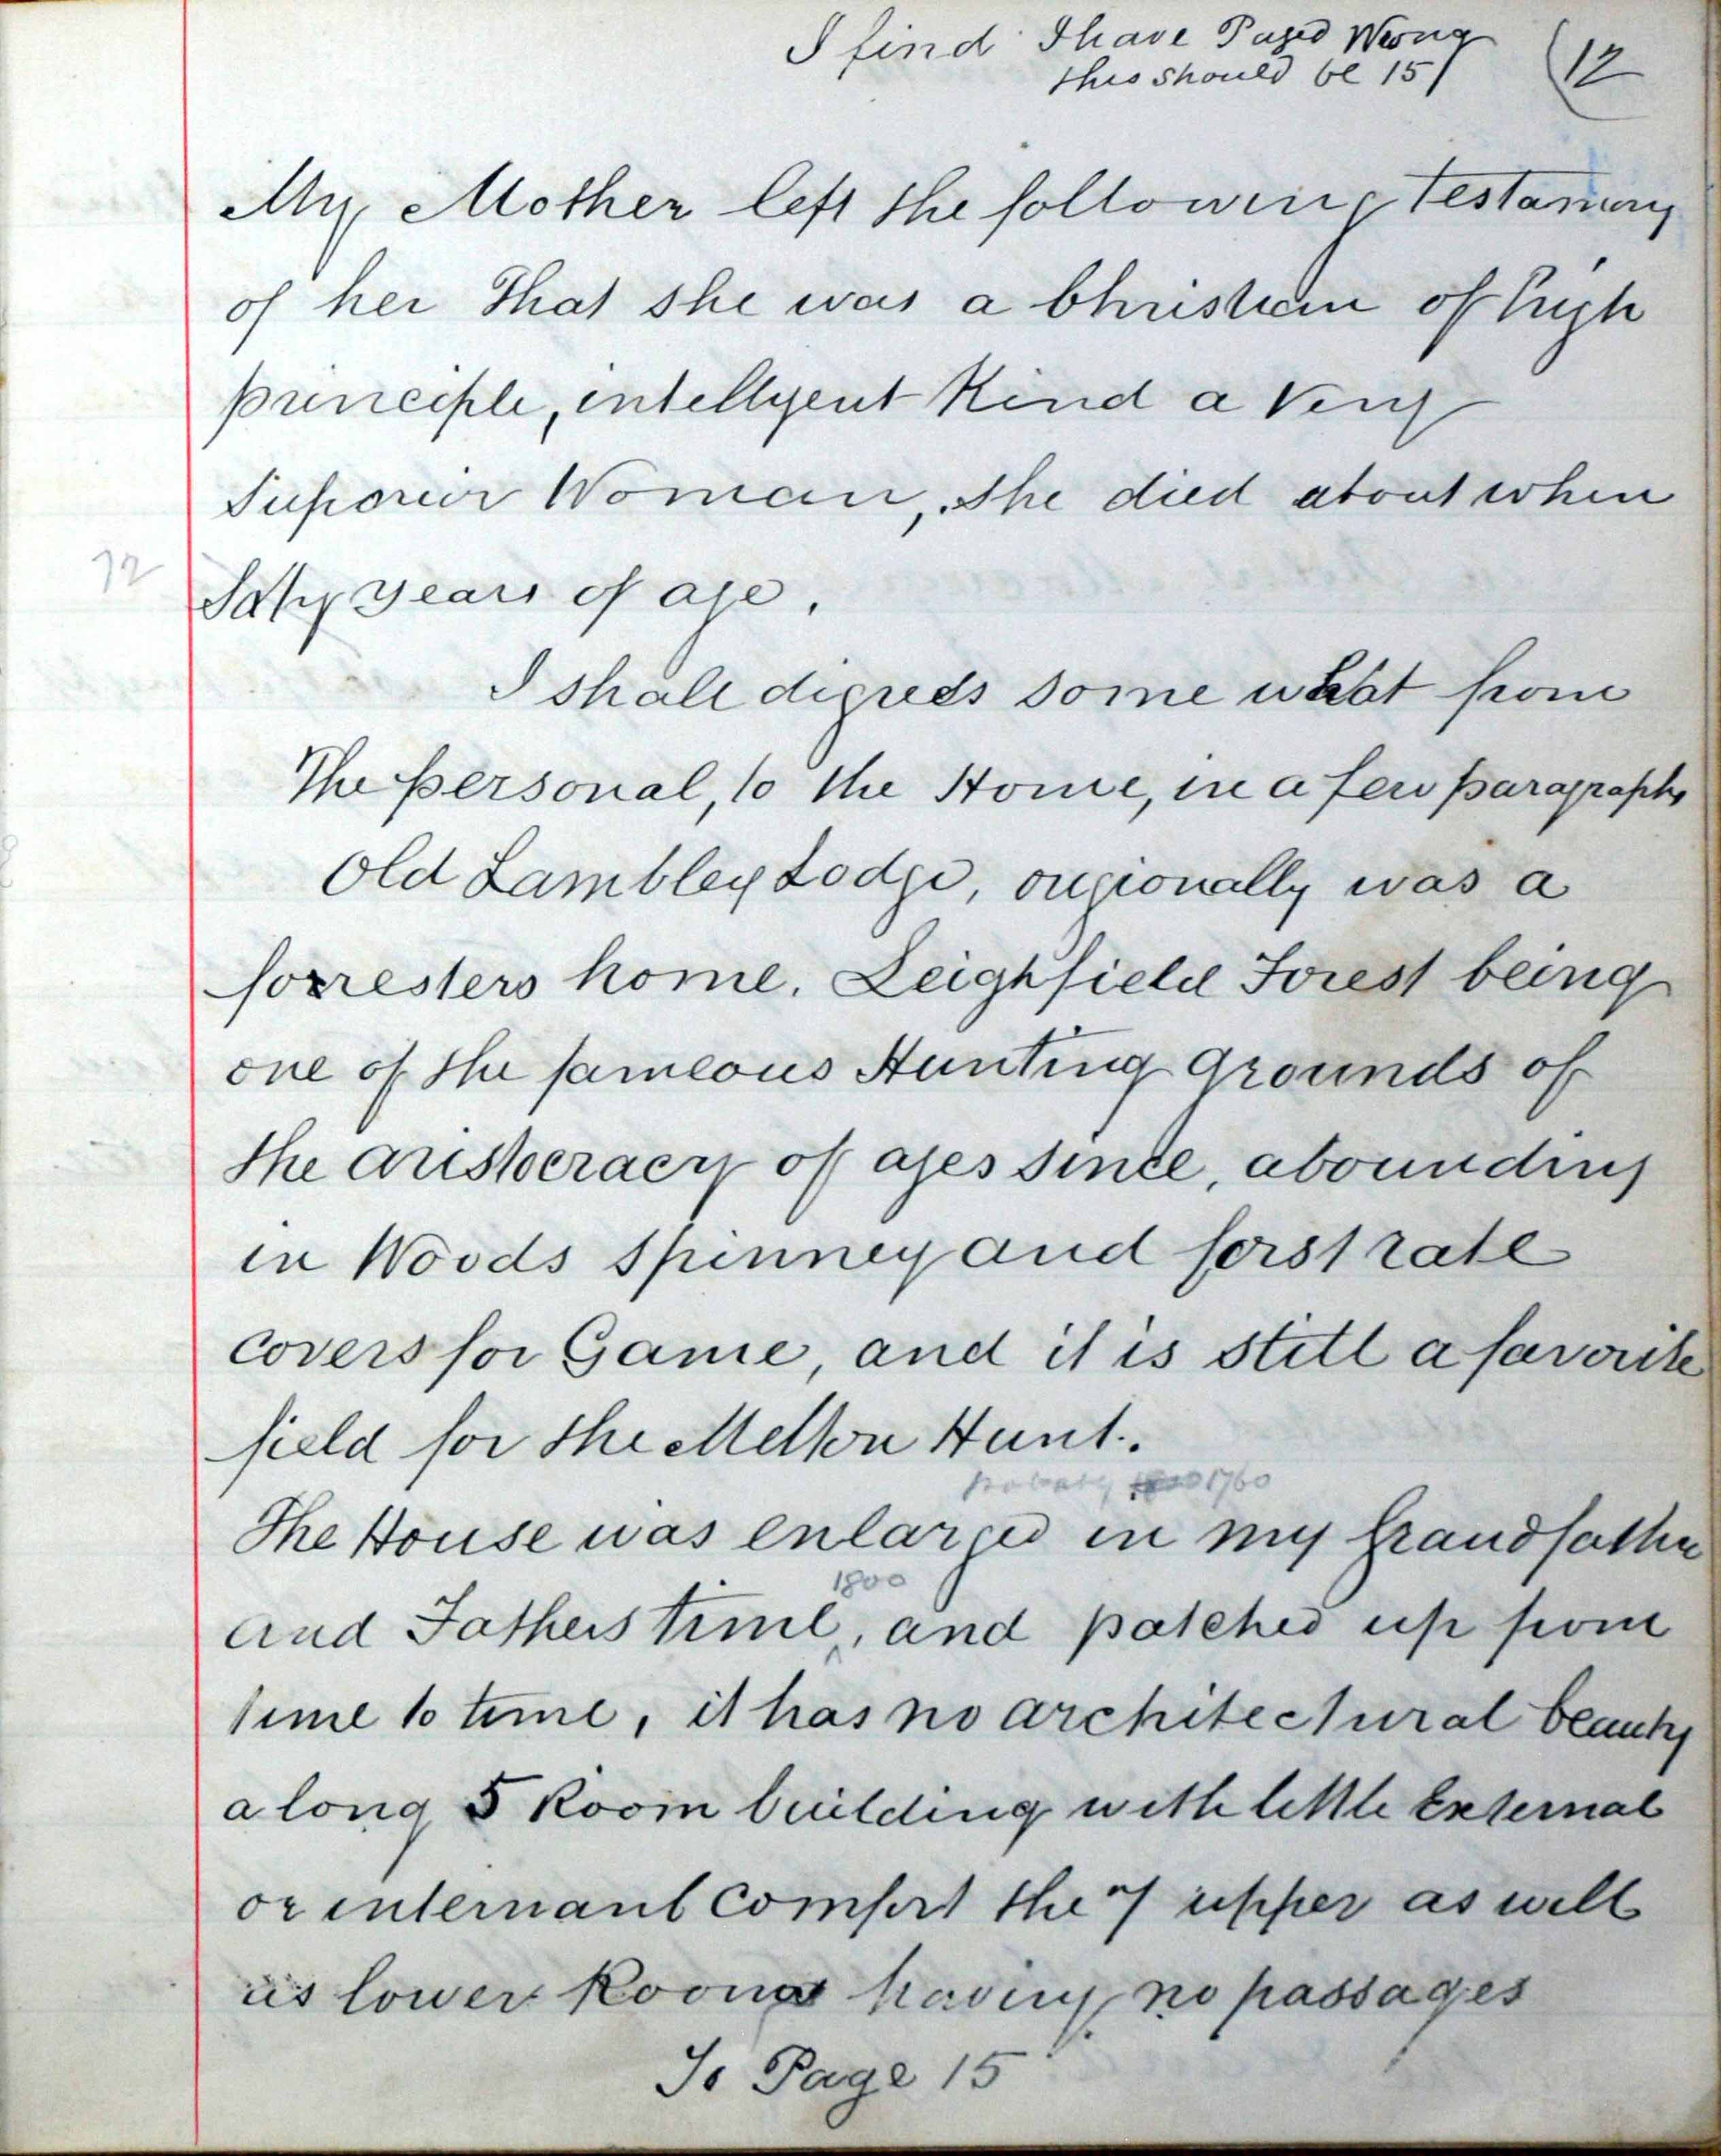 I find I have Paged Wrong
this should be 15/
(12
My Mother left the following testamony
of her That she was a Christian of high
principle, intelligent Kind a very
Superior Woman, She died about when
72
Sixty years of age.
I shall digress some what from
The personal, to the Home, in a few paragraphs
Old Lambley Lodge, origionally was a
forresters home. Leighfield Forest being
one of the fameous Hunting grounds of
the aristocracy of ages since, abounding
in Woods Spinney and first rate
covers for Game, and it is still a favorite
field for the Melton Hunt.
probably 1760
The House was enlarged in my Grandfather
1800
and Fathers time, and patched up from
time to time, it has no architectural beauty
a long 5 Room building with little External
or internanl comfort the upper as well
as lower Rooms having no passages
To Page 15